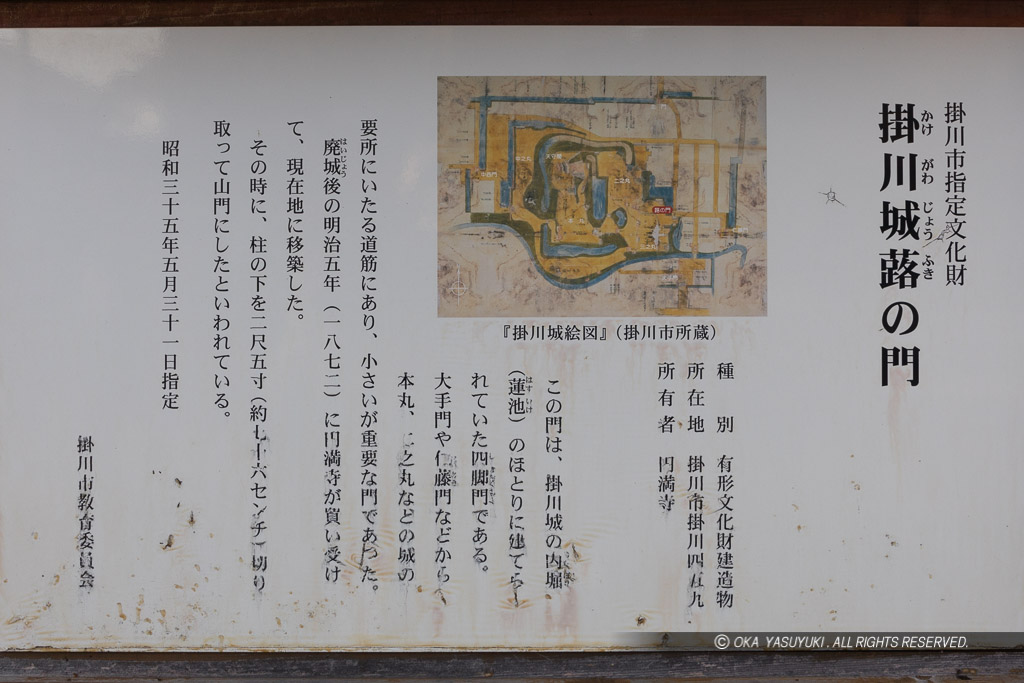 掛川市指定文化財
掛川城蕗の門
かけ がわ じょう ふき
種 別 有形文化財建造物
所在地 掛川市掛川四五九
所有者 円満寺
『掛川城絵図』(掛川市所蔵)
この門は、掛川城の内堀
(蓮池)のほとりに建てら
はす いけ
れていた四脚門である。
大手門や仁藤門などから
本丸、二之丸などの城の
要所にいたる道筋にあり、小さいが重要な門であった。
廃城後の明治五年(一八七二)に円満寺が買い受け
はいじょう
て、現在地に移築した。
その時に、柱の下を二尺五寸(約七十六センチ)切り
取って山門にしたといわれている。
昭和三十五年五月三十一日指定
掛川市教育委員会
© OKA YASUYUKI. ALL RIGHTS RESERVED.